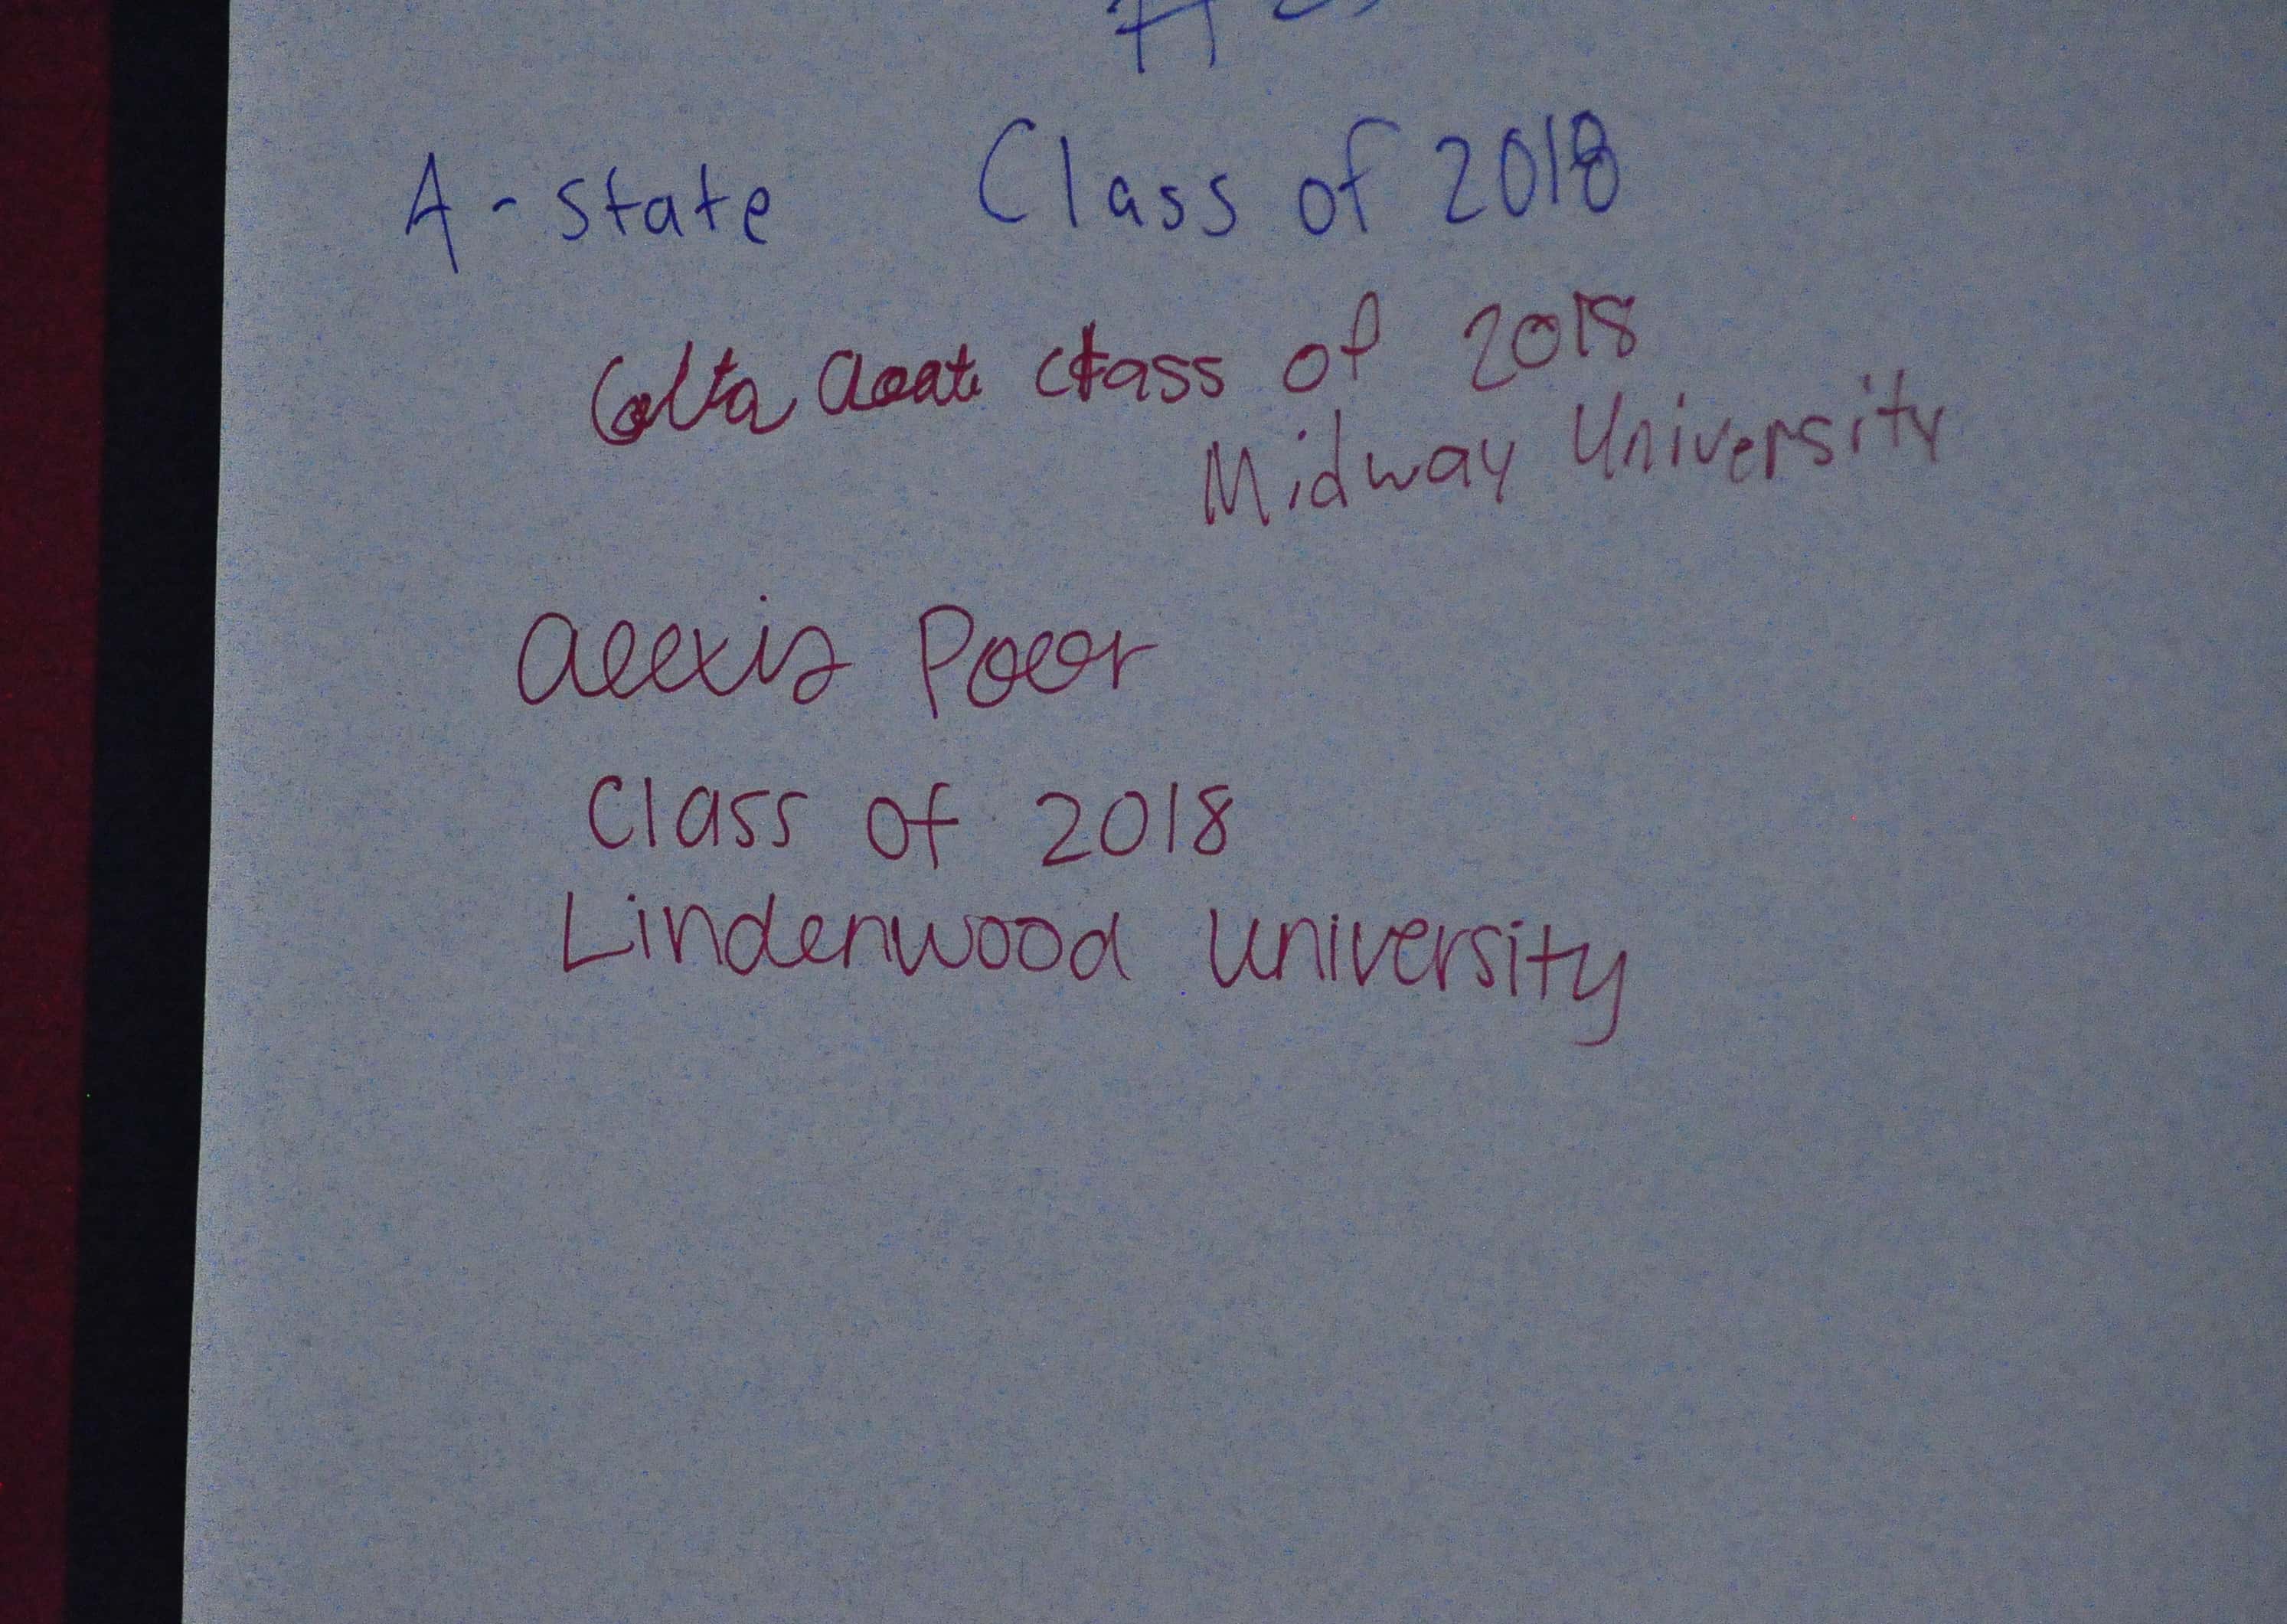 A-State Class of 2018
class of 2018
Midway University
Alexis Poer
Class of 2018
Lindenwood University